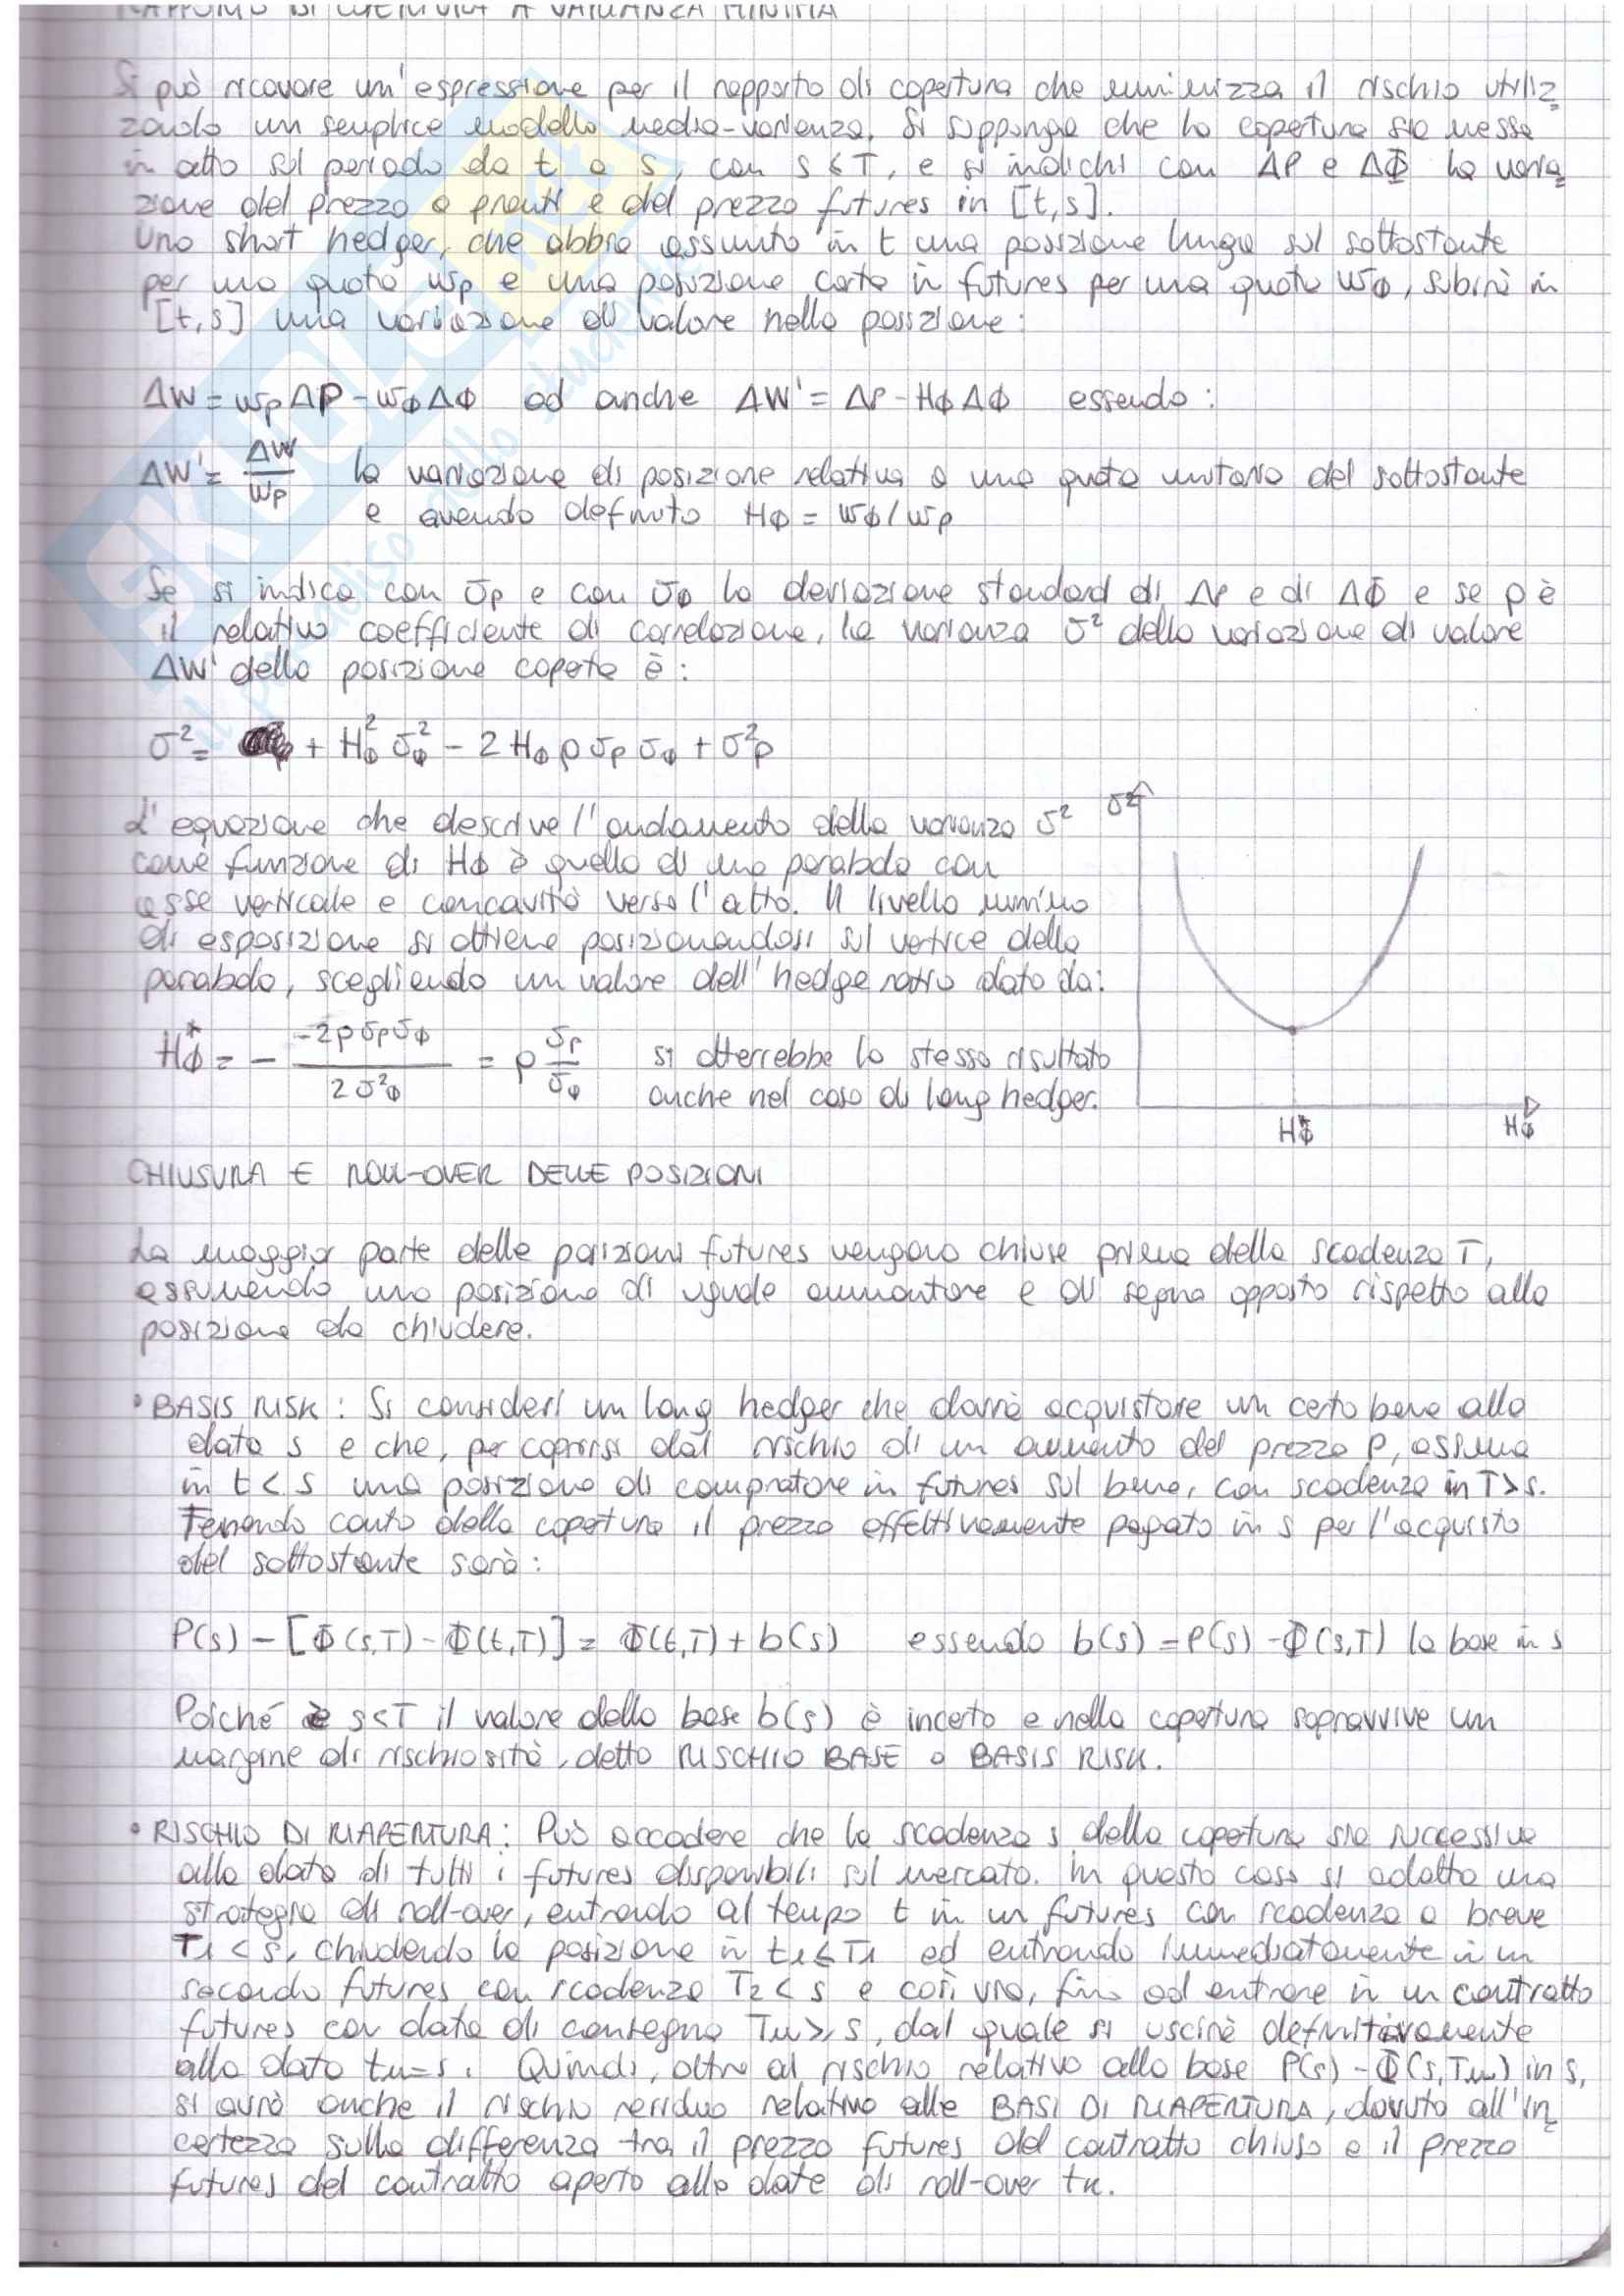 RAPPORTO DI COPERTURA A VARIANZA MINIMA
Si può ricavare un'espressione per il rapporto di copertura che minimizza il rischio utiliz
zando un semplice modello media-varianza. Si supponga che la copertura sia messa
in atto sul periodo da t a s, con s ≤ T, e si indichi con ΔP e ΔΦ la varia
zione del prezzo a pronti e del prezzo futures in [t,s].
Uno short hedger, che abbia assunto in t una posizione lunga sul sottostante
per una quota wp e una posizione corta in futures per una quota wΦ, subirà in
[t,s] una variazione di valore nella posizione:
ΔW = wp ΔP - wΦ ΔΦ od anche ΔW' = ΔP - HΦ ΔΦ essendo:
ΔW' = ΔW / wp la variazione di posizione relativa a una quota unitaria del sottostante
e avendo definito HΦ = wΦ / wp
Se si indica con σp e con σΦ la deviazione standard di ΔP e di ΔΦ e se ρ è
il relativo coefficiente di correlazione, la varianza σ² della variazione di valore
ΔW' della posizione coperta è:
σ² = + HΦ² σΦ² - 2 HΦ ρ σp σΦ + σ²p
L'equazione che descrive l'andamento della varianza σ²
come funzione di HΦ è quella di una parabola con
asse verticale e concavità verso l'alto. Il livello minimo
di esposizione si ottiene posizionandosi sul vertice della
parabola, scegliendo un valore dell'hedge ratio dato da:
H*Φ = - -2ρσpσΦ / 2σ²Φ = ρ σp / σΦ si otterrebbe lo stesso risultato
anche nel caso di long hedger.
σ²
H*Φ
HΦ
CHIUSURA E ROLL-OVER DELLE POSIZIONI
La maggior parte delle posizioni futures vengono chiuse prima della scadenza T,
assumendo una posizione di uguale ammontare e di segno opposto rispetto alla
posizione da chiudere.
• BASIS RISK: Si consideri un long hedger che dovrà acquistare un certo bene alla
data s e che, per coprirsi dal rischio di un aumento del prezzo P, assuma
in t < s una posizione di compratore in futures sul bene, con scadenza in T > s.
Tenendo conto della copertura il prezzo effettivamente pagato in s per l'acquisto
del sottostante sarà:
P(s) - [Φ(s,T) - Φ(t,T)] = Φ(t,T) + b(s) essendo b(s) = P(s) - Φ(s,T) la base in s
Poiché è s<T il valore della base b(s) è incerto e nella copertura sopravvive un
margine di rischiosità, detto RISCHIO BASE o BASIS RISK.
• RISCHIO DI RIAPERTURA: Può accadere che la scadenza s della copertura sia successiva
alla data di tutti i futures disponibili sul mercato. In questo caso si adotta una
strategia di roll-over, entrando al tempo t in un futures con scadenza a breve
T1 < s, chiudendo la posizione in t1 ≤ T1 ed entrando immediatamente in un
secondo futures con scadenza T2 < s e così via, fino ad entrare in un contratto
futures con data di consegna Tn ≥ s, dal quale si uscirà definitivamente
alla data tn = s. Quindi, oltre al rischio relativo alla base P(s) - Φ(s,Tn) in s,
si avrà anche il rischio residuo relativo alle BASI DI RIAPERTURA, dovuto all'in
certezza sulla differenza tra il prezzo futures del contratto chiuso e il prezzo
futures del contratto aperto alle date di roll-over tk.